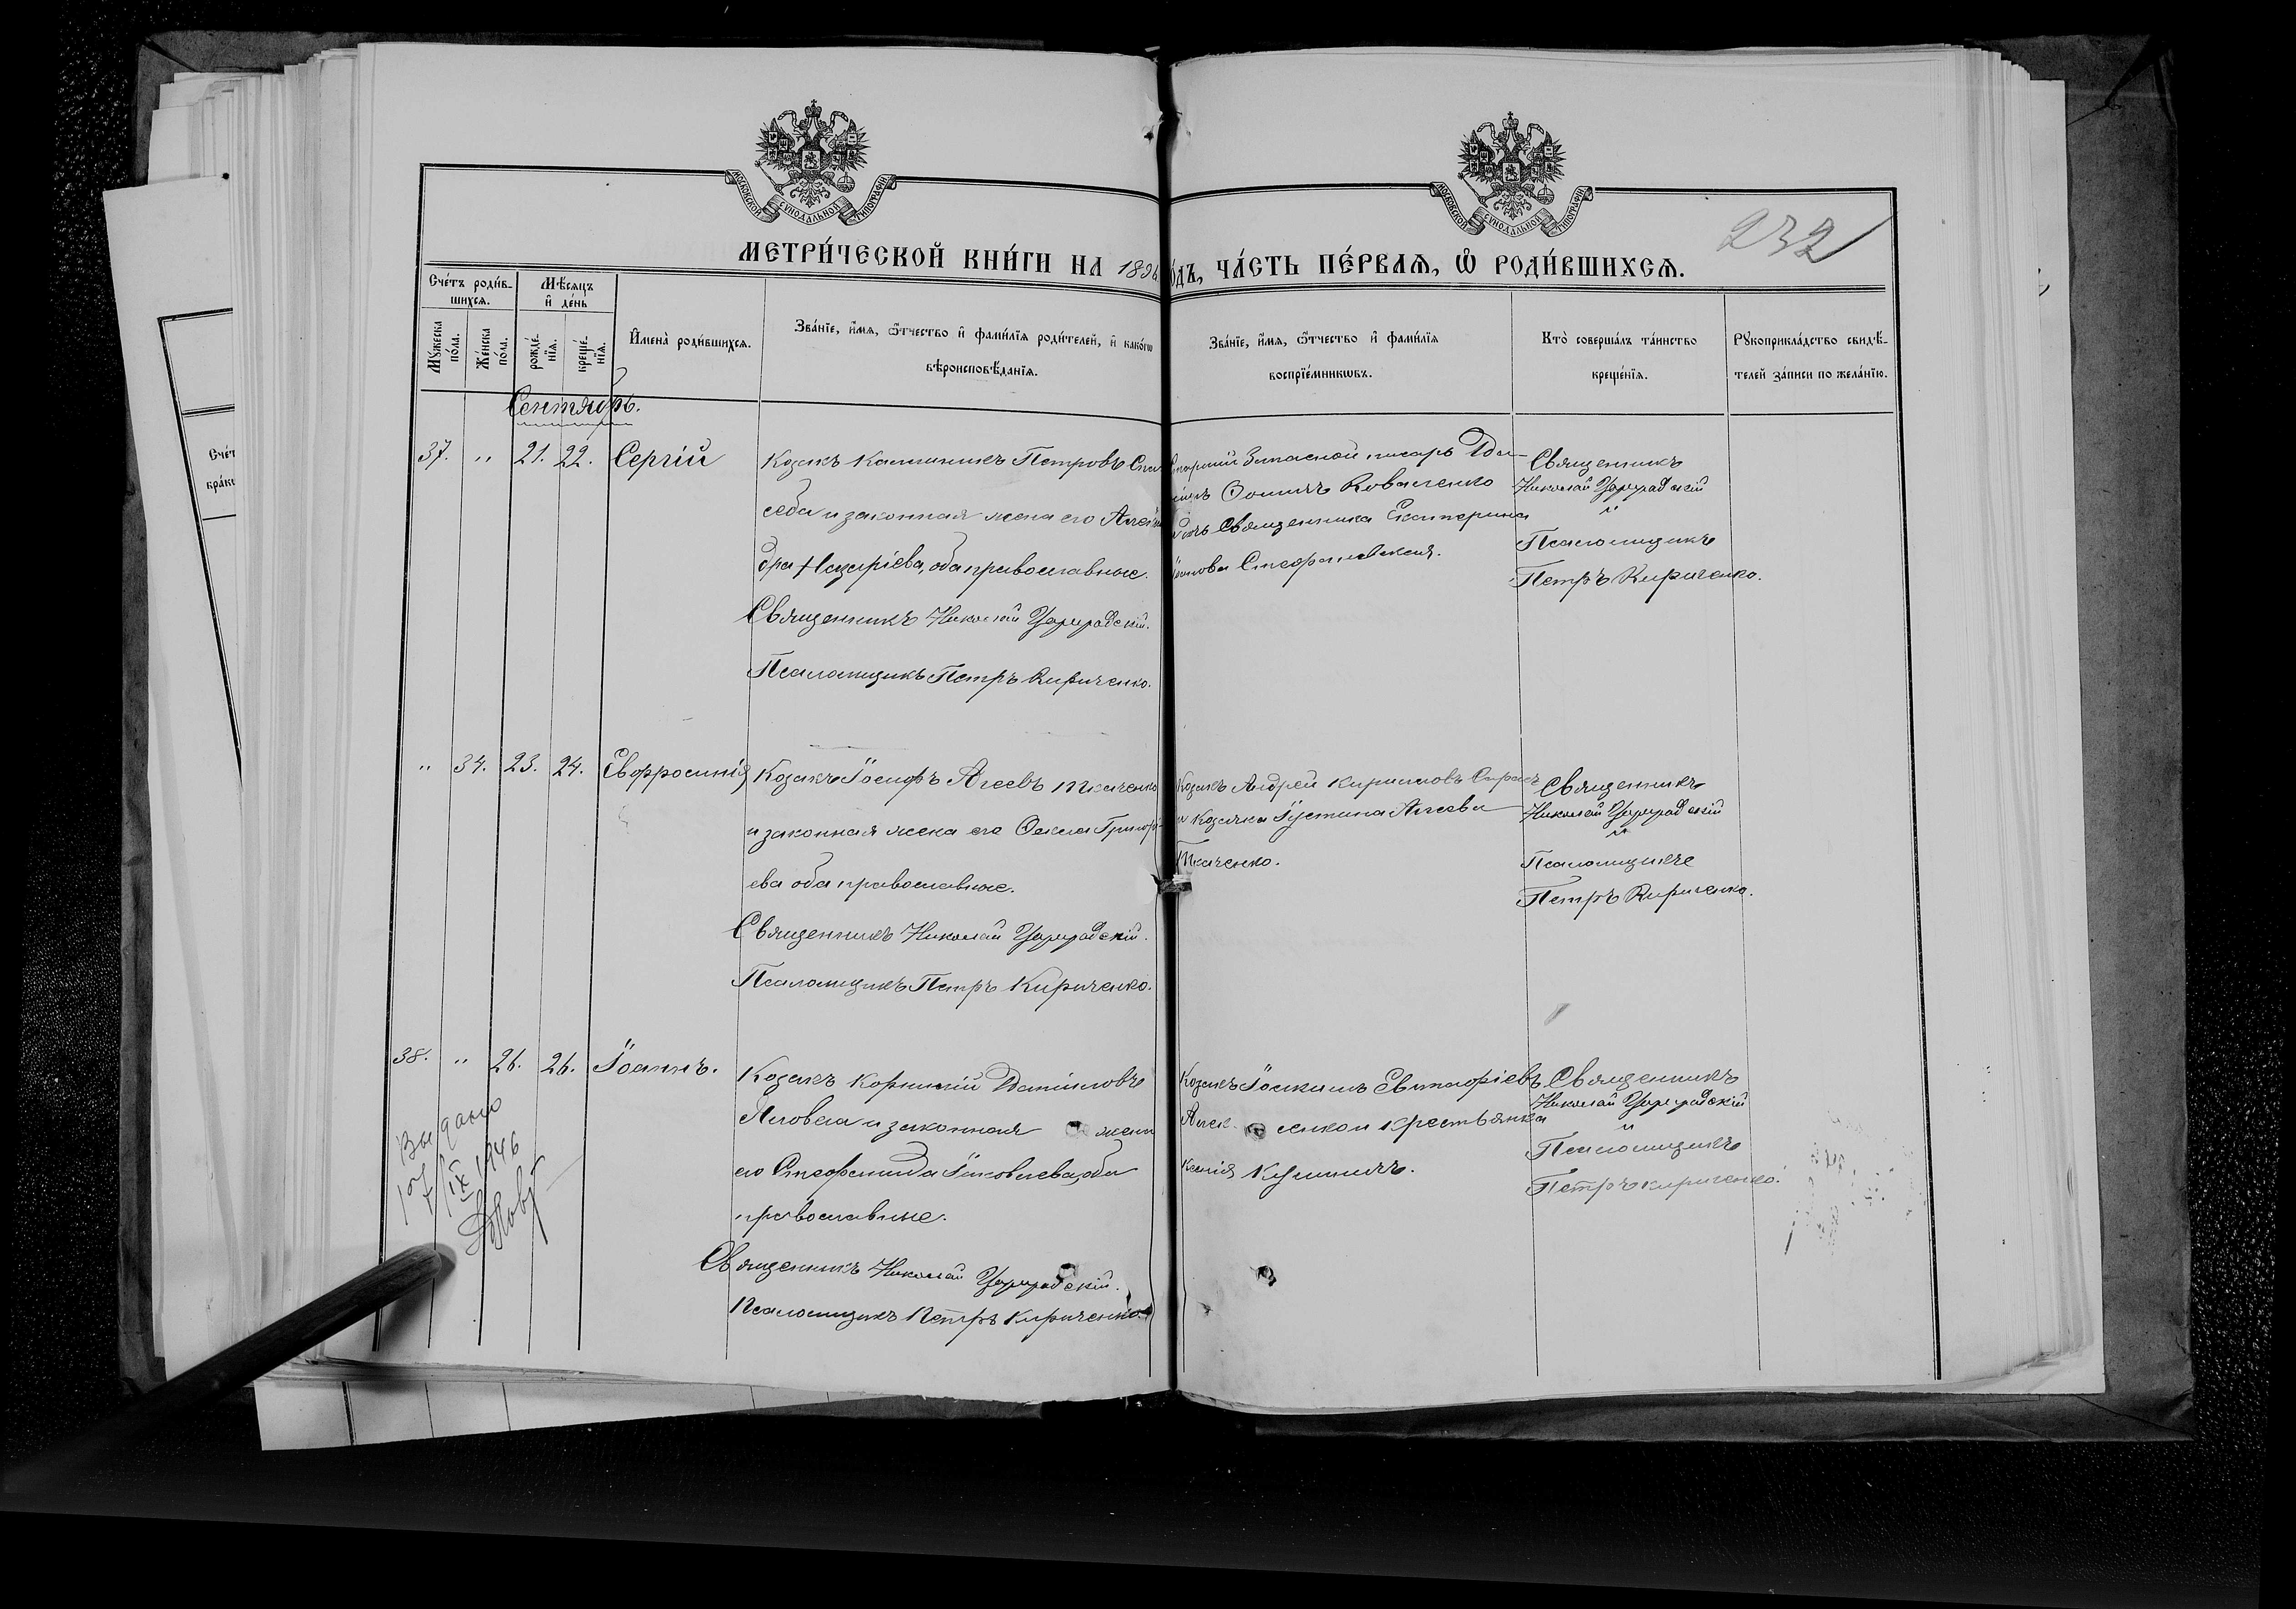 МОСКОВСКОЙ СѴНОДАЛЬНОЙ ТИПОГРАФІИ
МОСКОВСКОЙ СѴНОДАЛЬНОЙ ТИПОГРАФІИ
232
МЕТРИ́ЧЕСКОЙ КНИ́ГИ НА 1896
ѻ́дъ, ЧА́СТЬ ПЕ́РВАѦ, Ѡ҆ РОДИ́ВШИХСѦ.
Сче́тъ роди́в-
шихсѧ.
Мѣ́сѧцъ
и҆ де́нь
Мꙋ́жеска
по́ла.
Же́нска
по́ла.
рожде́-
нїѧ.
креще́-
нїѧ.
И҆мена̀ роди́вшихсѧ.
Зва́нїе, и҆́мѧ, ѻ҆́тчество и҆ фами́лїѧ роди́телей, и҆ како́гѡ
вѣроисповѣ́данїѧ.
Зва́нїе, и҆́мѧ, ѻ҆́тчество и҆ фами́лїѧ
воспрїе́мникѡвъ.
Кто̀ соверша́лъ та́инство
креще́нїѧ.
Рꙋкоприкла́дство свидѣ́-
телей за́писи по жела́нїю.
Сче́т
бра́ко
Сентябрь.
37. " 21. 22. Сергій
Козакъ Каллиникъ Петровъ
и законная жена его
дра Назаріева, оба православные.
Священникъ Николай Цареградскій.
Псаломщикъ Петръ Кириченко.
Запасной писарь
Ѳоминъ Коваленко
Священника Екатерина
Стефановская.
Священникъ
Николай Цареградскій
Псаломщикъ
Петръ Кириченко.
" 34. 23. 24. Евфросинія
Козакъ Іосифъ Агеевъ Ткаченко
и законная жена его Ѳекла Григорі-
ева оба православные.
Священникъ Николай Цареградскій.
Псаломщикъ Петръ Кириченко.
Козакъ Андрей Кирилловъ
и козачка Іустина Агеева
Ткаченко.
Священникъ
Николай Цареградскій
Псаломщикъ
Петръ Кириченко.
38. " 26. 26. Іоаннъ.
Козакъ Корнилій Даниловъ
и законная жена
его Стефанида Іаковлева, оба
православные.
Священникъ Николай Цареградскій.
Псаломщикъ Петръ Кириченко.
Козакъ Іоакимъ Евтихіевъ
и крестьянка
Ксенія
Священникъ
Николай Цареградскій
Псаломщикъ
Петръ Кириченко.
Выдано
IX 1946